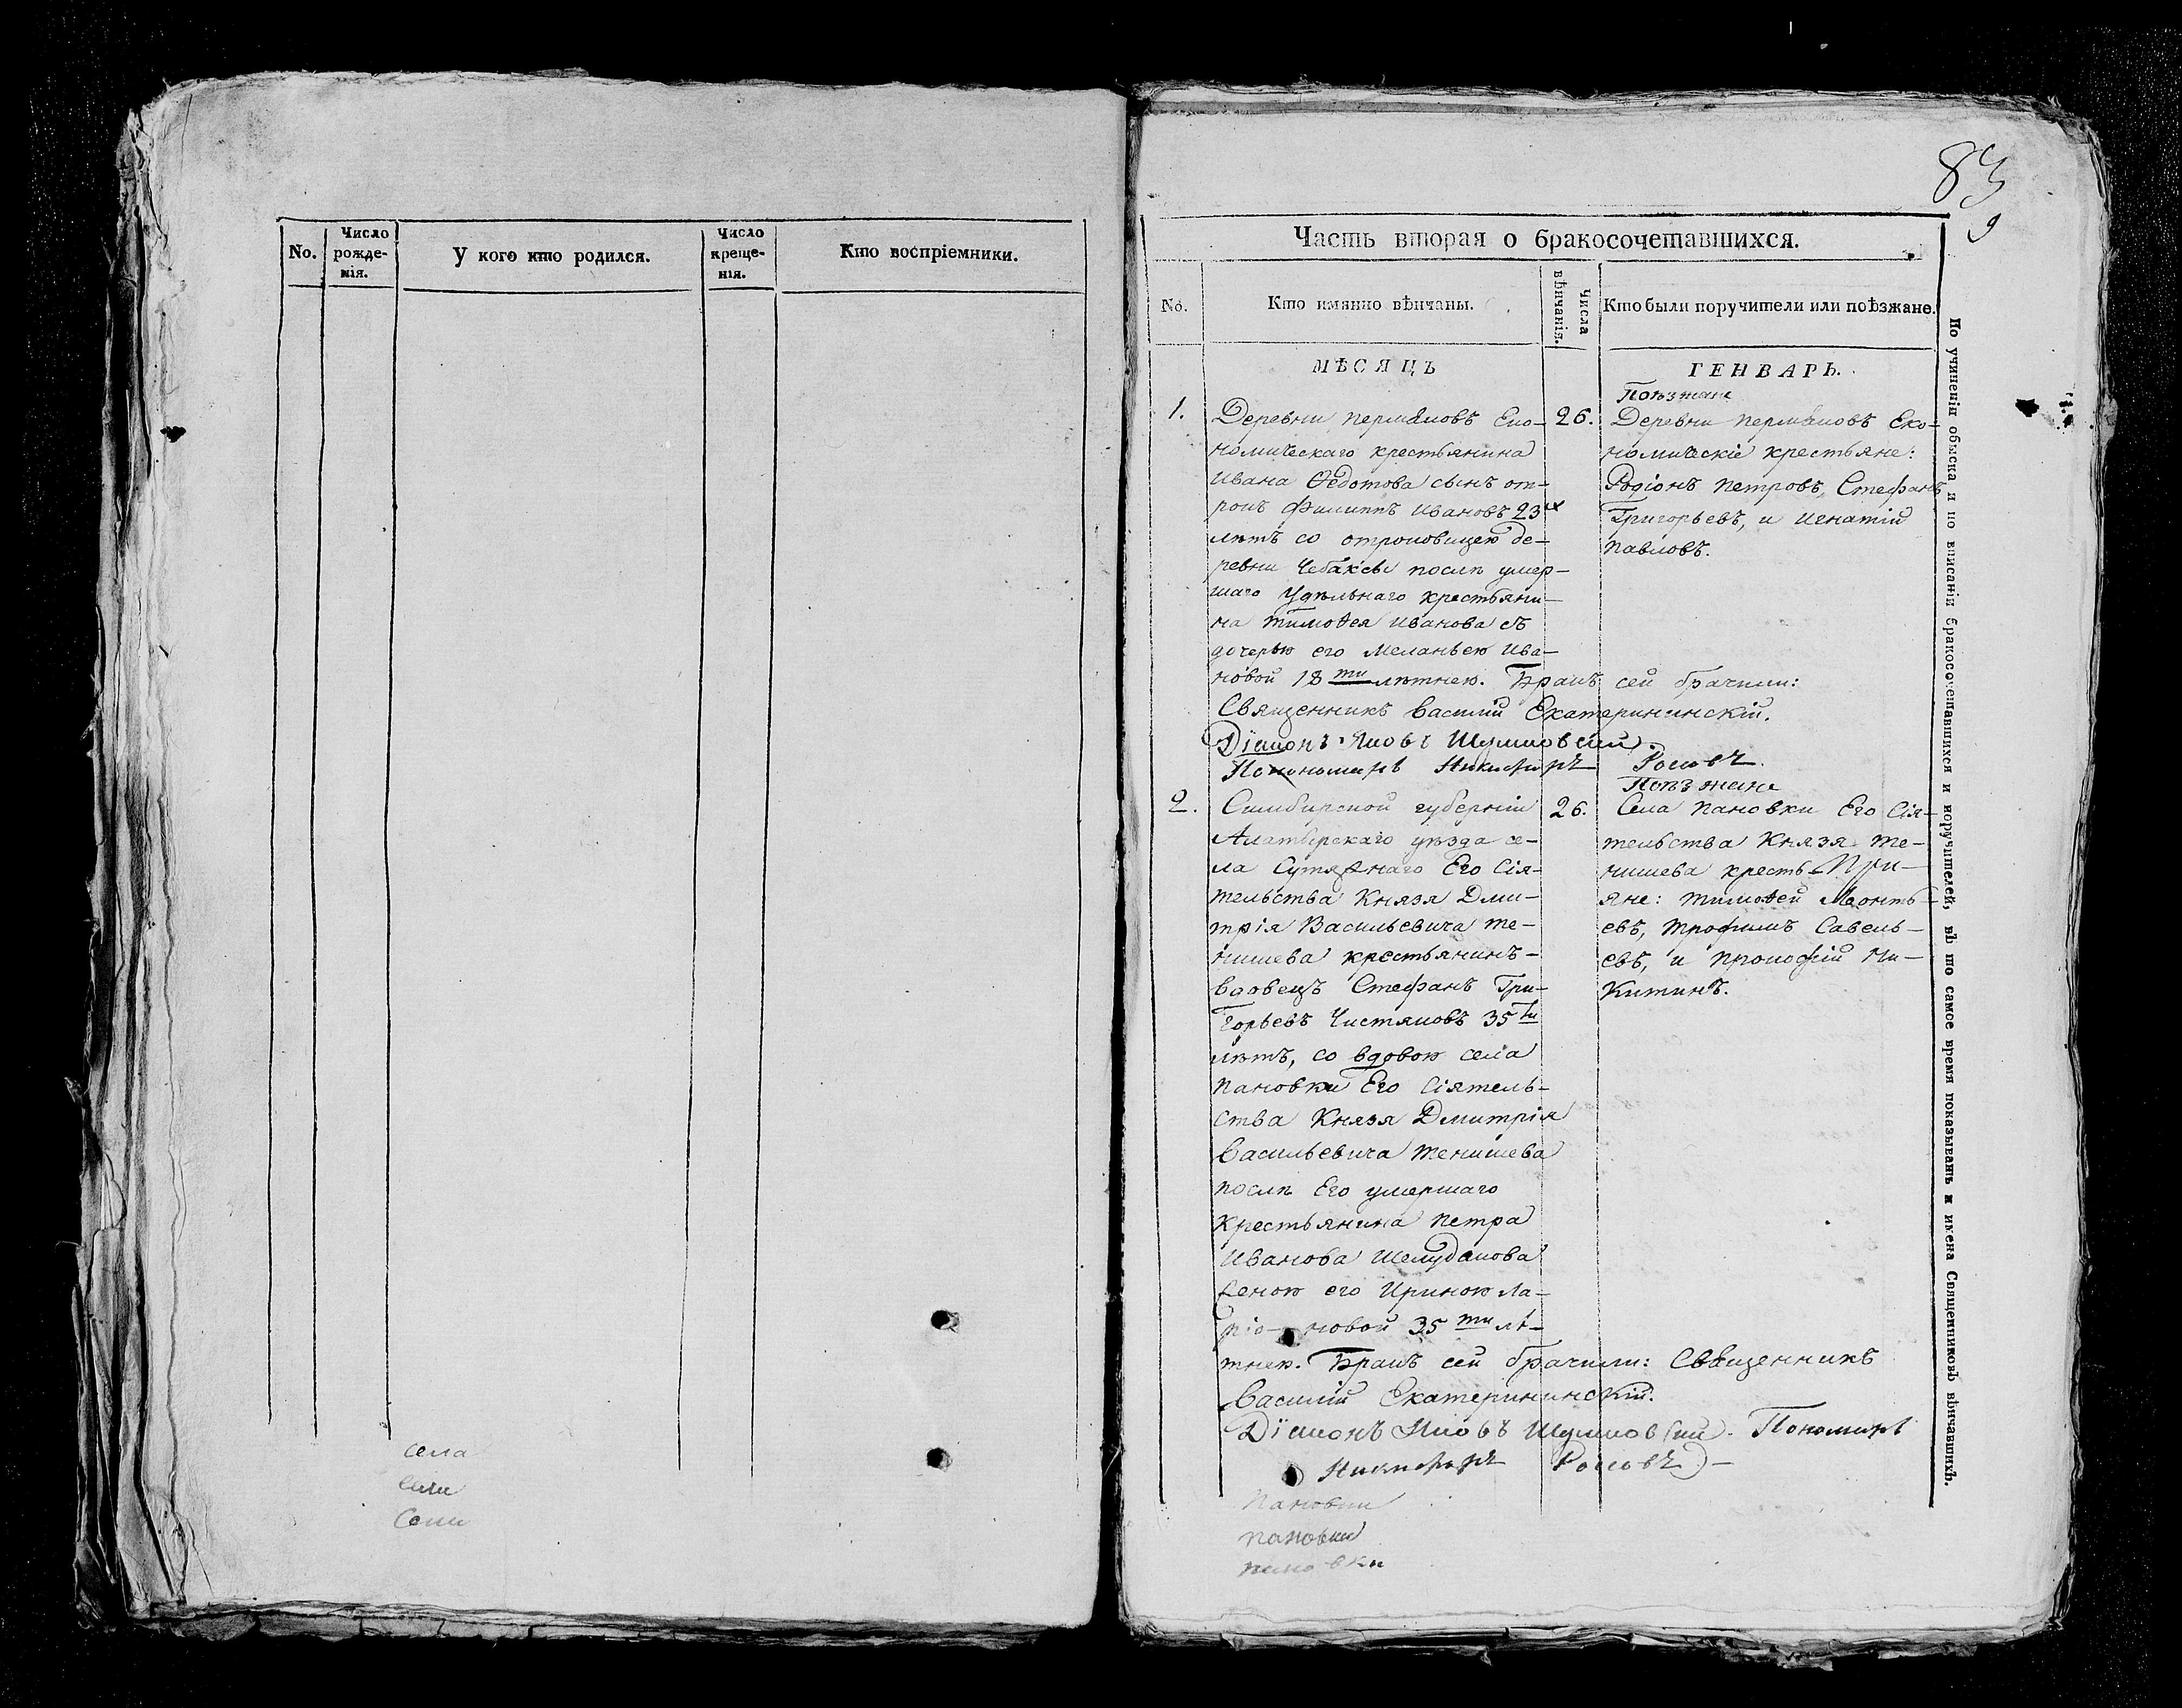 No.
Число рожде-нія.
У кого кто родился.
Число креще-нія.
Кто воспріемники.
села
села
Сели
83
9
Часть вторая о бракосочетавшихся.
No.
Кто имянно вѣнчаны.
Числа вѣнчанія.
Кто были поручители или поѣзжане.
МѢСЯЦЪ
ГЕНВАРЬ.
1.
Деревни Пермяковъ Еко-
номическаго крестьянина
Ивана Ѳедотова сынъ от-
рокъ Филиппъ Ивановъ 23х
лѣтъ со отроковицею де-
ревни Чебаксы послѣ умер-
шаго Удѣльнаго крестьяни-
на Тимоѳея Иванова съ
дочерью его Меланьею Ива-
новой 18ти лѣтнею. Бракъ сей брачили:
Священникъ Василій Екатерининскій.
Діаконъ Яковъ Шумковскій.
Пономарь Никифоръ Роговъ.
26.
Поѣзжане
Деревни Пермяковъ Еко-
номическіе крестьяне:
Родіонъ Петровъ, Стефанъ
Григорьевъ, и Игнатій
Павловъ.
2.
Симбирской губерніи
Алатырскаго уѣзда се-
ла Сутяжнаго Его Сія-
тельства Князя Дми-
трія Васильевича Те-
нишева крестьянинъ-
вдовецъ Стефанъ Гри-
горьевъ Чистяковъ 35ти
лѣтъ, со вдовою села
Пановки Его Сіятель-
ства Князя Дмитрія
Васильевича Тенишева
послѣ Его умершаго
крестьянина Петра
Иванова Шелудякова
женою его Ириною Ла-
ріо-новой 35ти лѣ-
тнею. Бракъ сей брачили: Священникъ
Василій Екатерининскій.
Діаконъ Яковъ Шумковскій. Пономарь
Никифоръ Роговъ
26.
Поѣзжане
Села Пановки Его Сія-
тельства Князя Те-
нишева кресть-
яне: Тимоѳей Леонть-
евъ, Трофимъ Савель-
евъ, и Прокофій Ни-
китинъ.
Пановки
пановки
пановки
По учиненіи обыска и по вписаніи бракосочетавшихся и поручителей, въ то самое время показывать и имена Священниковъ вѣнчавшихъ.